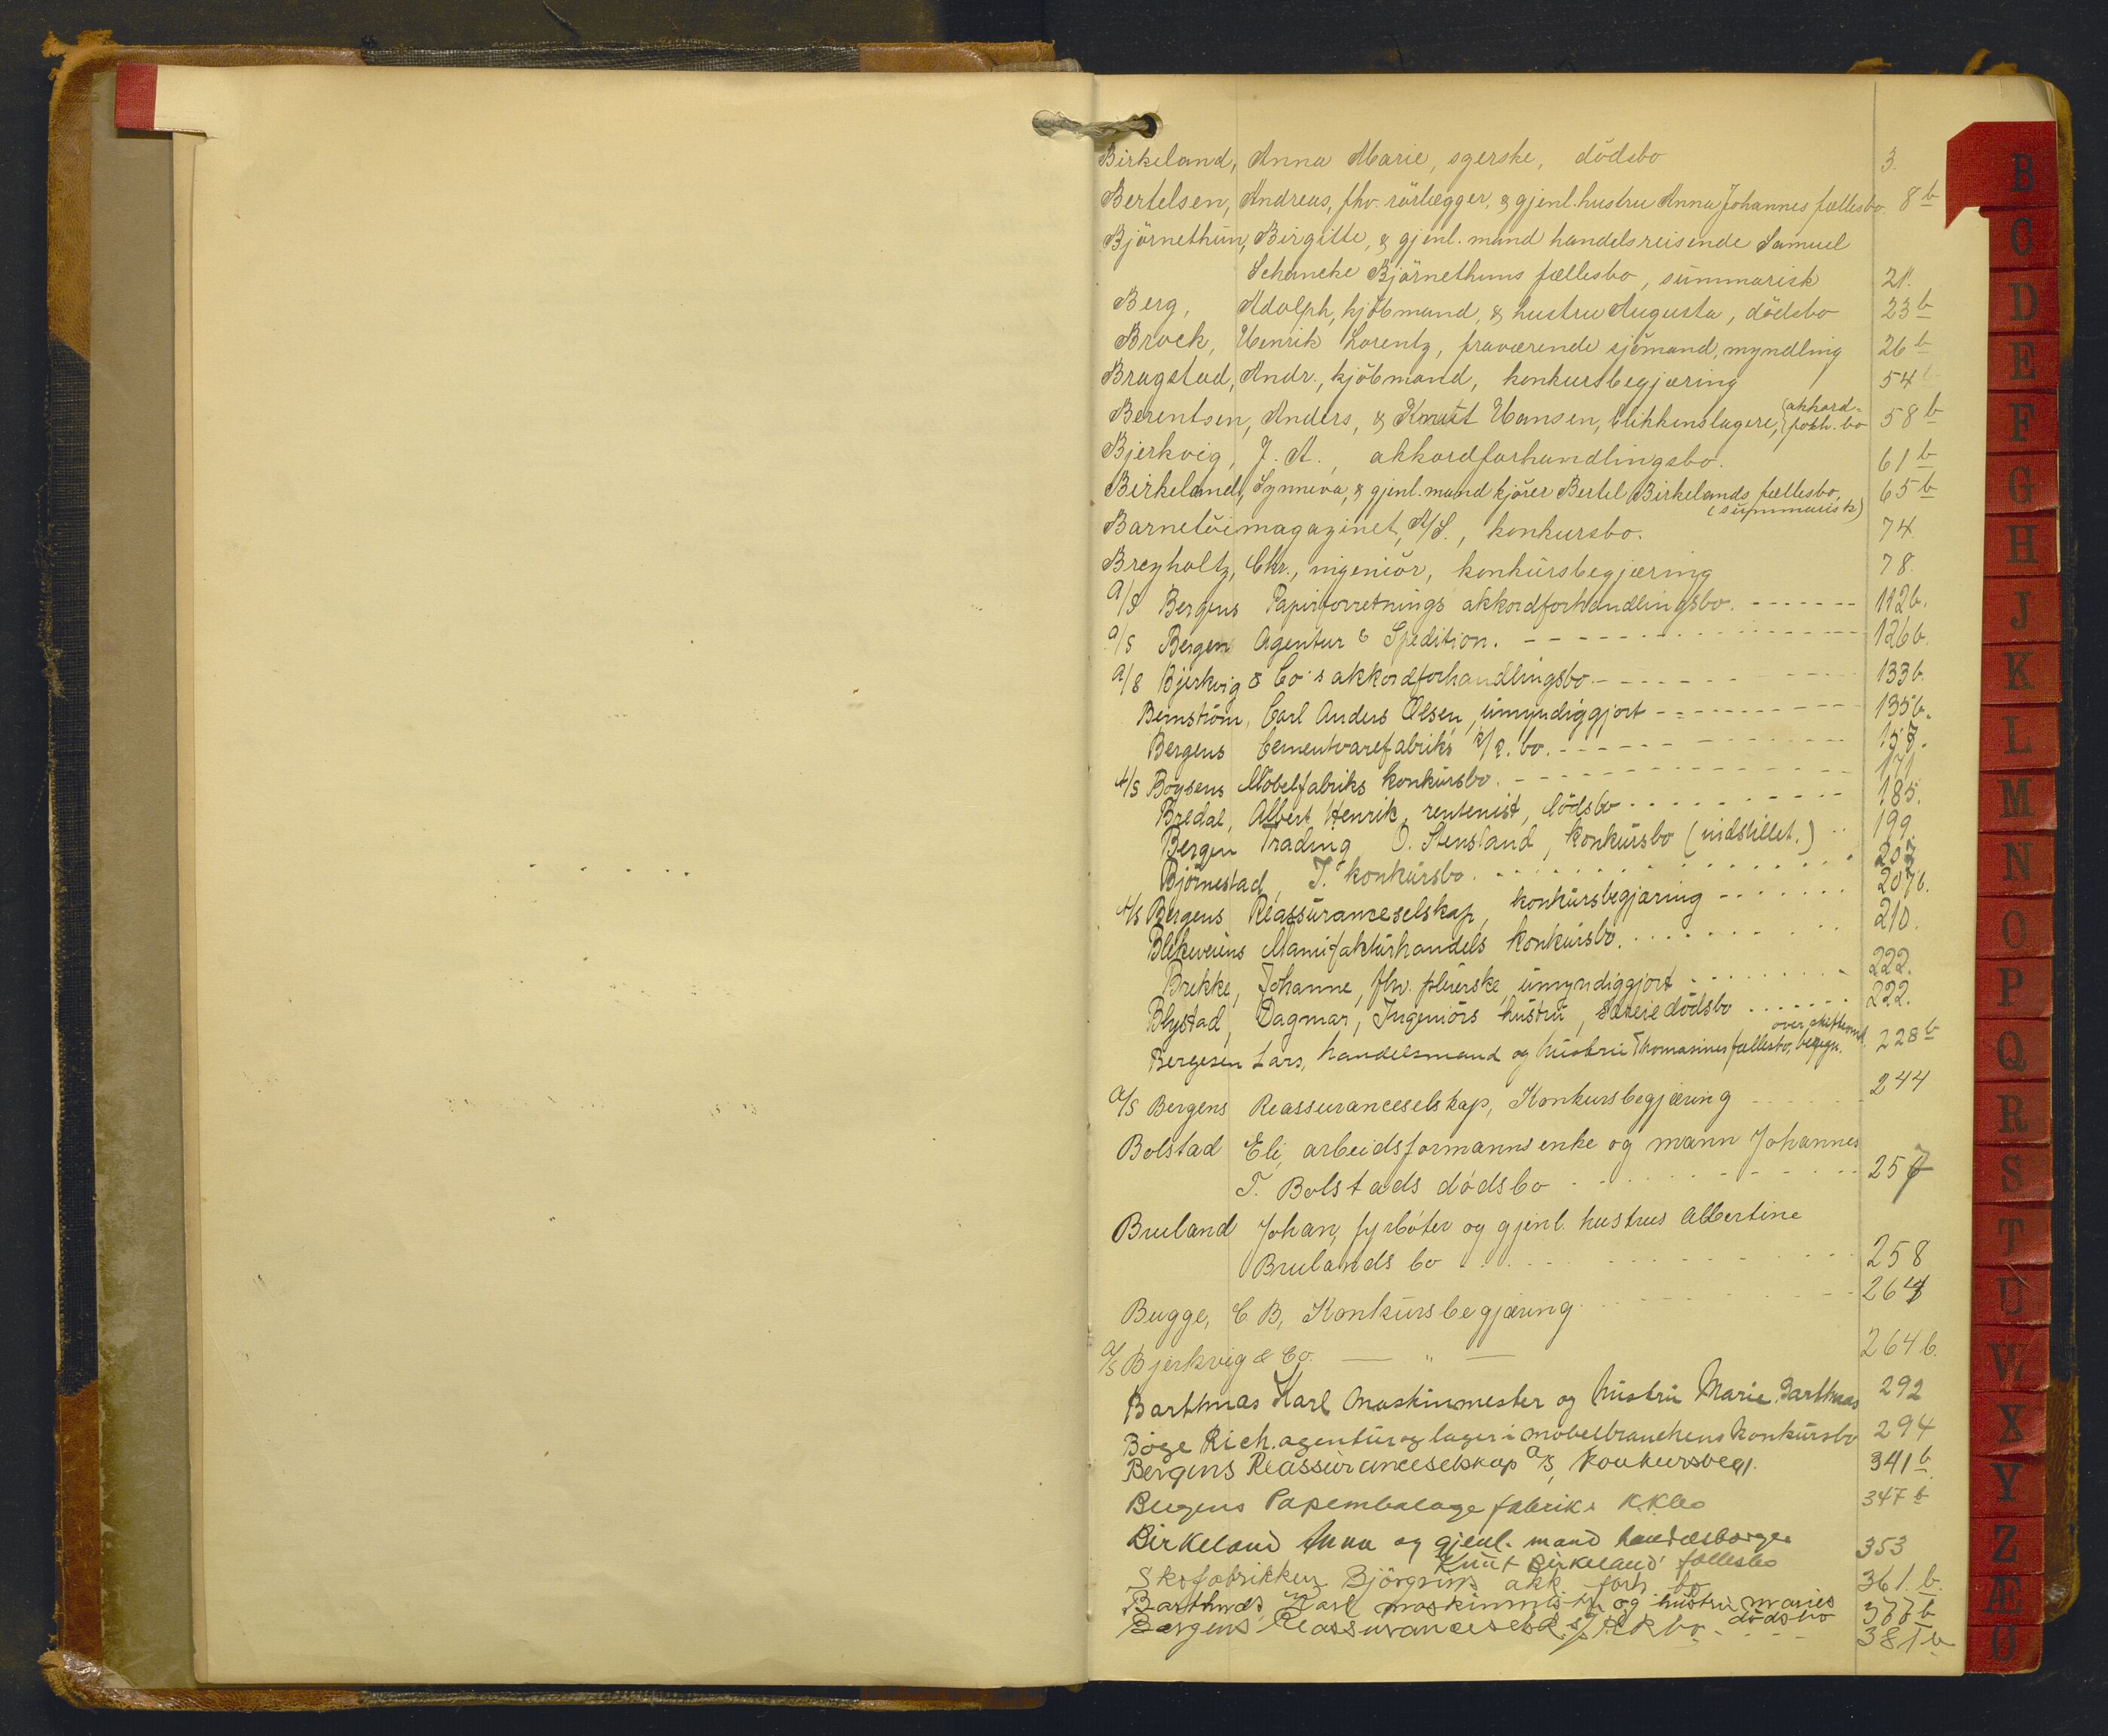 Birkeland, Anna Marie, syerske, dödsbo 3.
Bertelsen, Andreas, fhv. rörlægger, & gjenl. hustru Anna Johannes fællesbo 8 b
Björnethun, Birgitte, & gjenl. mand handelsreisende Samuel
Schancke Björnethuns fællesbo, summarisk 21.
Berg, Adolph, kjöbmand, & hustru Augusta, dödsbo 23 b
Brock, Henrik Lorentz, fraværende sjömand, myndling 26 b
Bragstad, Andr., kjöbmand, konkursbegjæring 54
Berentsen, Anders, & Knut Hansen, blikkenslagere, akkord-
forh. bo 58 b
Bjerkvig, J. A., akkordforhandlingsbo. 61 b
Birkeland, Synneva, & gjenl. mand kjörer Bertel Birkelands fællesbo, 65 b
(summarisk)
Barnetöimagazinet, A/S., konkursbo. 74.
Breyholtz, Chr., ingeniör, konkursbegjæring 78.
A/S Bergens Papirforretnings akkordforhandlingsbo. 112 b.
a/s Bergen Agentur & Spedition. 126 b.
a/s Bjerkvig & Co's akkordforhandlingsbo. 133 b.
Bernström, Carl Anders Olsen, umyndiggjort 135 b.
Bergens Cementvarefabriks bo. 157.
A/S Boysens Möbelfabriks konkursbo. 171
Bredal, Albert Henrik, rentenist, dödsbo 185.
Bergen Trading, O. Stensland, konkursbo (indstillet.) 199.
Björnestad, T. konkursbo. 207
A/S Bergens Reassuranceselskap, konkursbegjæring 207 b.
Blekeveiens Manufakturhandels konkursbo. 210.
Brekke, Johanne, fhv. pleierske, umyndiggjort 222.
Blystad, Dagmar, Ingeniörs hustru, særeie dödsbo 222.
over skiftkomt.
Bergesen Lars, handelsmand og hustru Thomasines fællesbo, 228 b
A/S Bergens Reassuranceselskap, Konkursbegjæring 244
Bolstad Eli, arbeidsformanns enke og mann Johannes
T. Bolstads dödsbo 257
Bruland Johan, fyrböter og gjenl. hustrus Albertine
Brulands bo 258
Bugge, C B, Konkursbegjæring 264
A/S Bjerkvig & Co. — " — 264 b.
Barthmas Karl Maskinmester og hustru Marie Barthmas 292
Böge Rich. agentur og lager i möbelbranchens konkursbo 294
Bergens Reassuranceselskap A/S, konkursbegj. 341 b
Bergens Papembalage fabriks KKbo 347 b
Birkeland Anna og gjenl. mand handelsborger
Knut Birkeland' fællesbo 353
Skofabrikken Björgvins akk. forh. bo 361. b.
Barthmas, Karl maskinmester og hustru Maries
dödsbo 377 b
Bergens Reassuranceselsk. A/S KK bo 381 b
B
C
D
E
F
G
H
J
K
L
M
N
O
P
Q
R
S
T
U
W
X
Y
Z
Æ
Ø